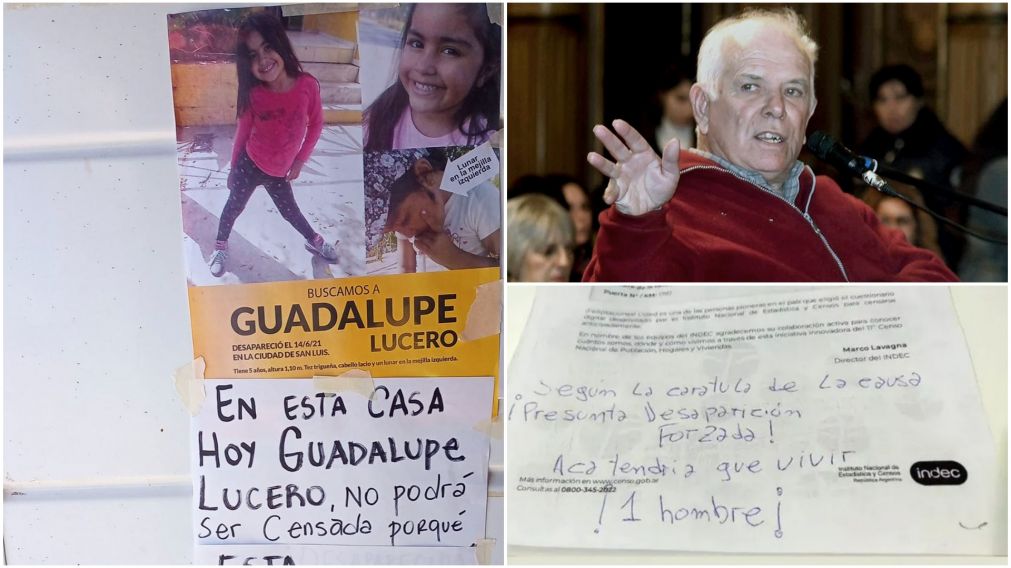 Lunar
en la mejilla
izquierda
BUSCAMOS A
GUADALUPE
LUCERO
DESAPARECIÓ EL 14/6/21
EN LA CIUDAD DE SAN LUIS.
Tiene 5 años, altura 1,10 m. Tez trigueña, cabello lacio y un lunar en la mejilla izquierda.
EN ESTA CASA
HOY GUADALUPE
LUCERO, NO podrá
ser Censada porqué
ESTA
Puerta N° / KM:
¡Felicitaciones! Usted es una de las personas pioneras en el país que eligió el cuestionario
digital desarrollado por el Instituto Nacional de Estadística y Censos para censarse
anticipadamente.
En nombre de los equipos del INDEC agradecemos su colaboración activa para conocer
cuántos somos, dónde y cómo vivimos a través de esta iniciativa innovadora del 11° Censo
Nacional de Población, Hogares y Viviendas.
Marco Lavagna
Director del INDEC
Según La caratula de La causa
¡Presunta Desaparición
Forzada!
Aca tendria que vivir
Más información en www.censo.gob.ar
Consultas al 0800-345-2022
Instituto Nacional de
Estadística y Censos
República Argentina
indec
¡1 hombre!